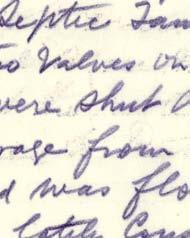 Septic Tan
to Valves on
were shut
rage from
d was flo
lately Cons